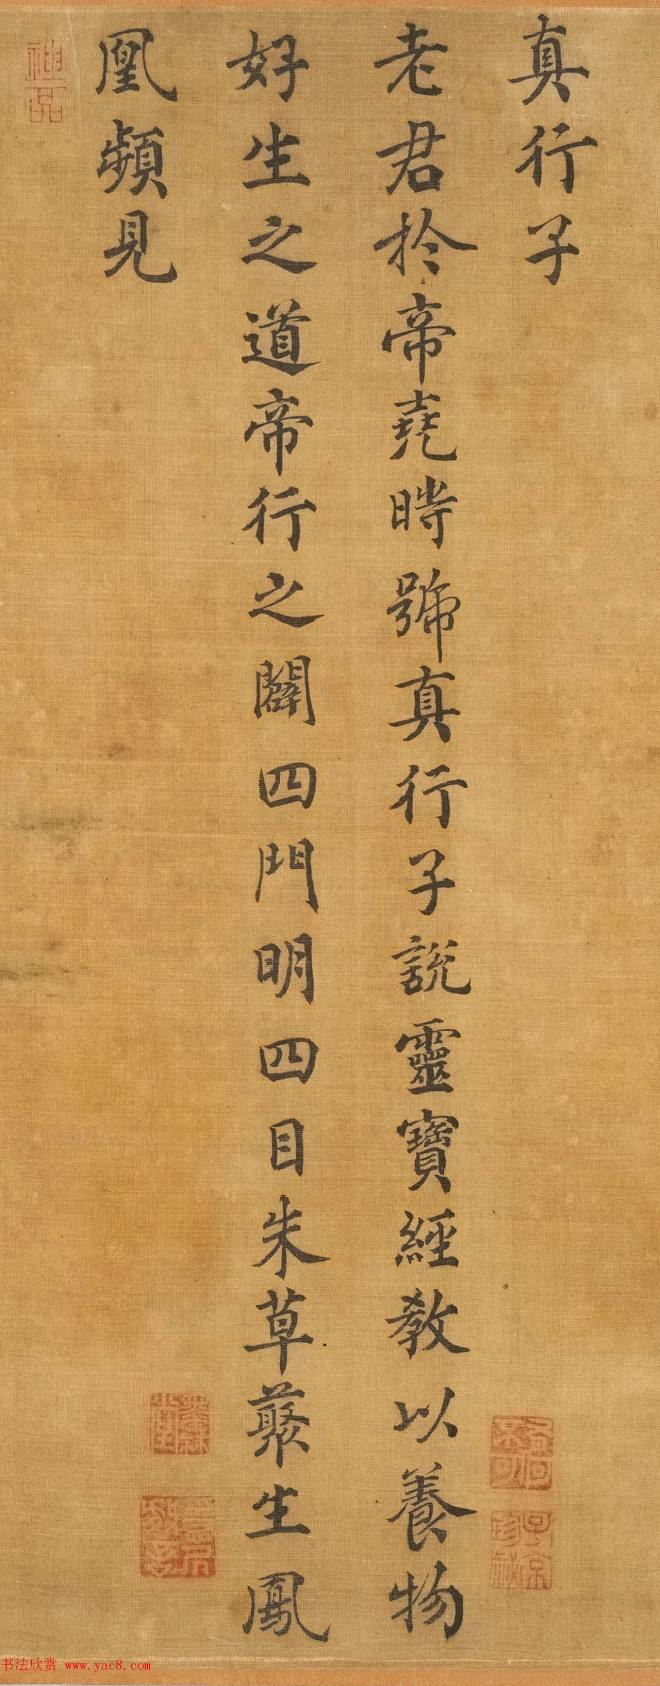 真行子
老君於帝堯時號真行子說靈寶經教以養物
好生之道帝行之闢四門明四目朱草叢生鳳
凰頻見
神品
子京珍祕
书法欣赏 www.yac8.com